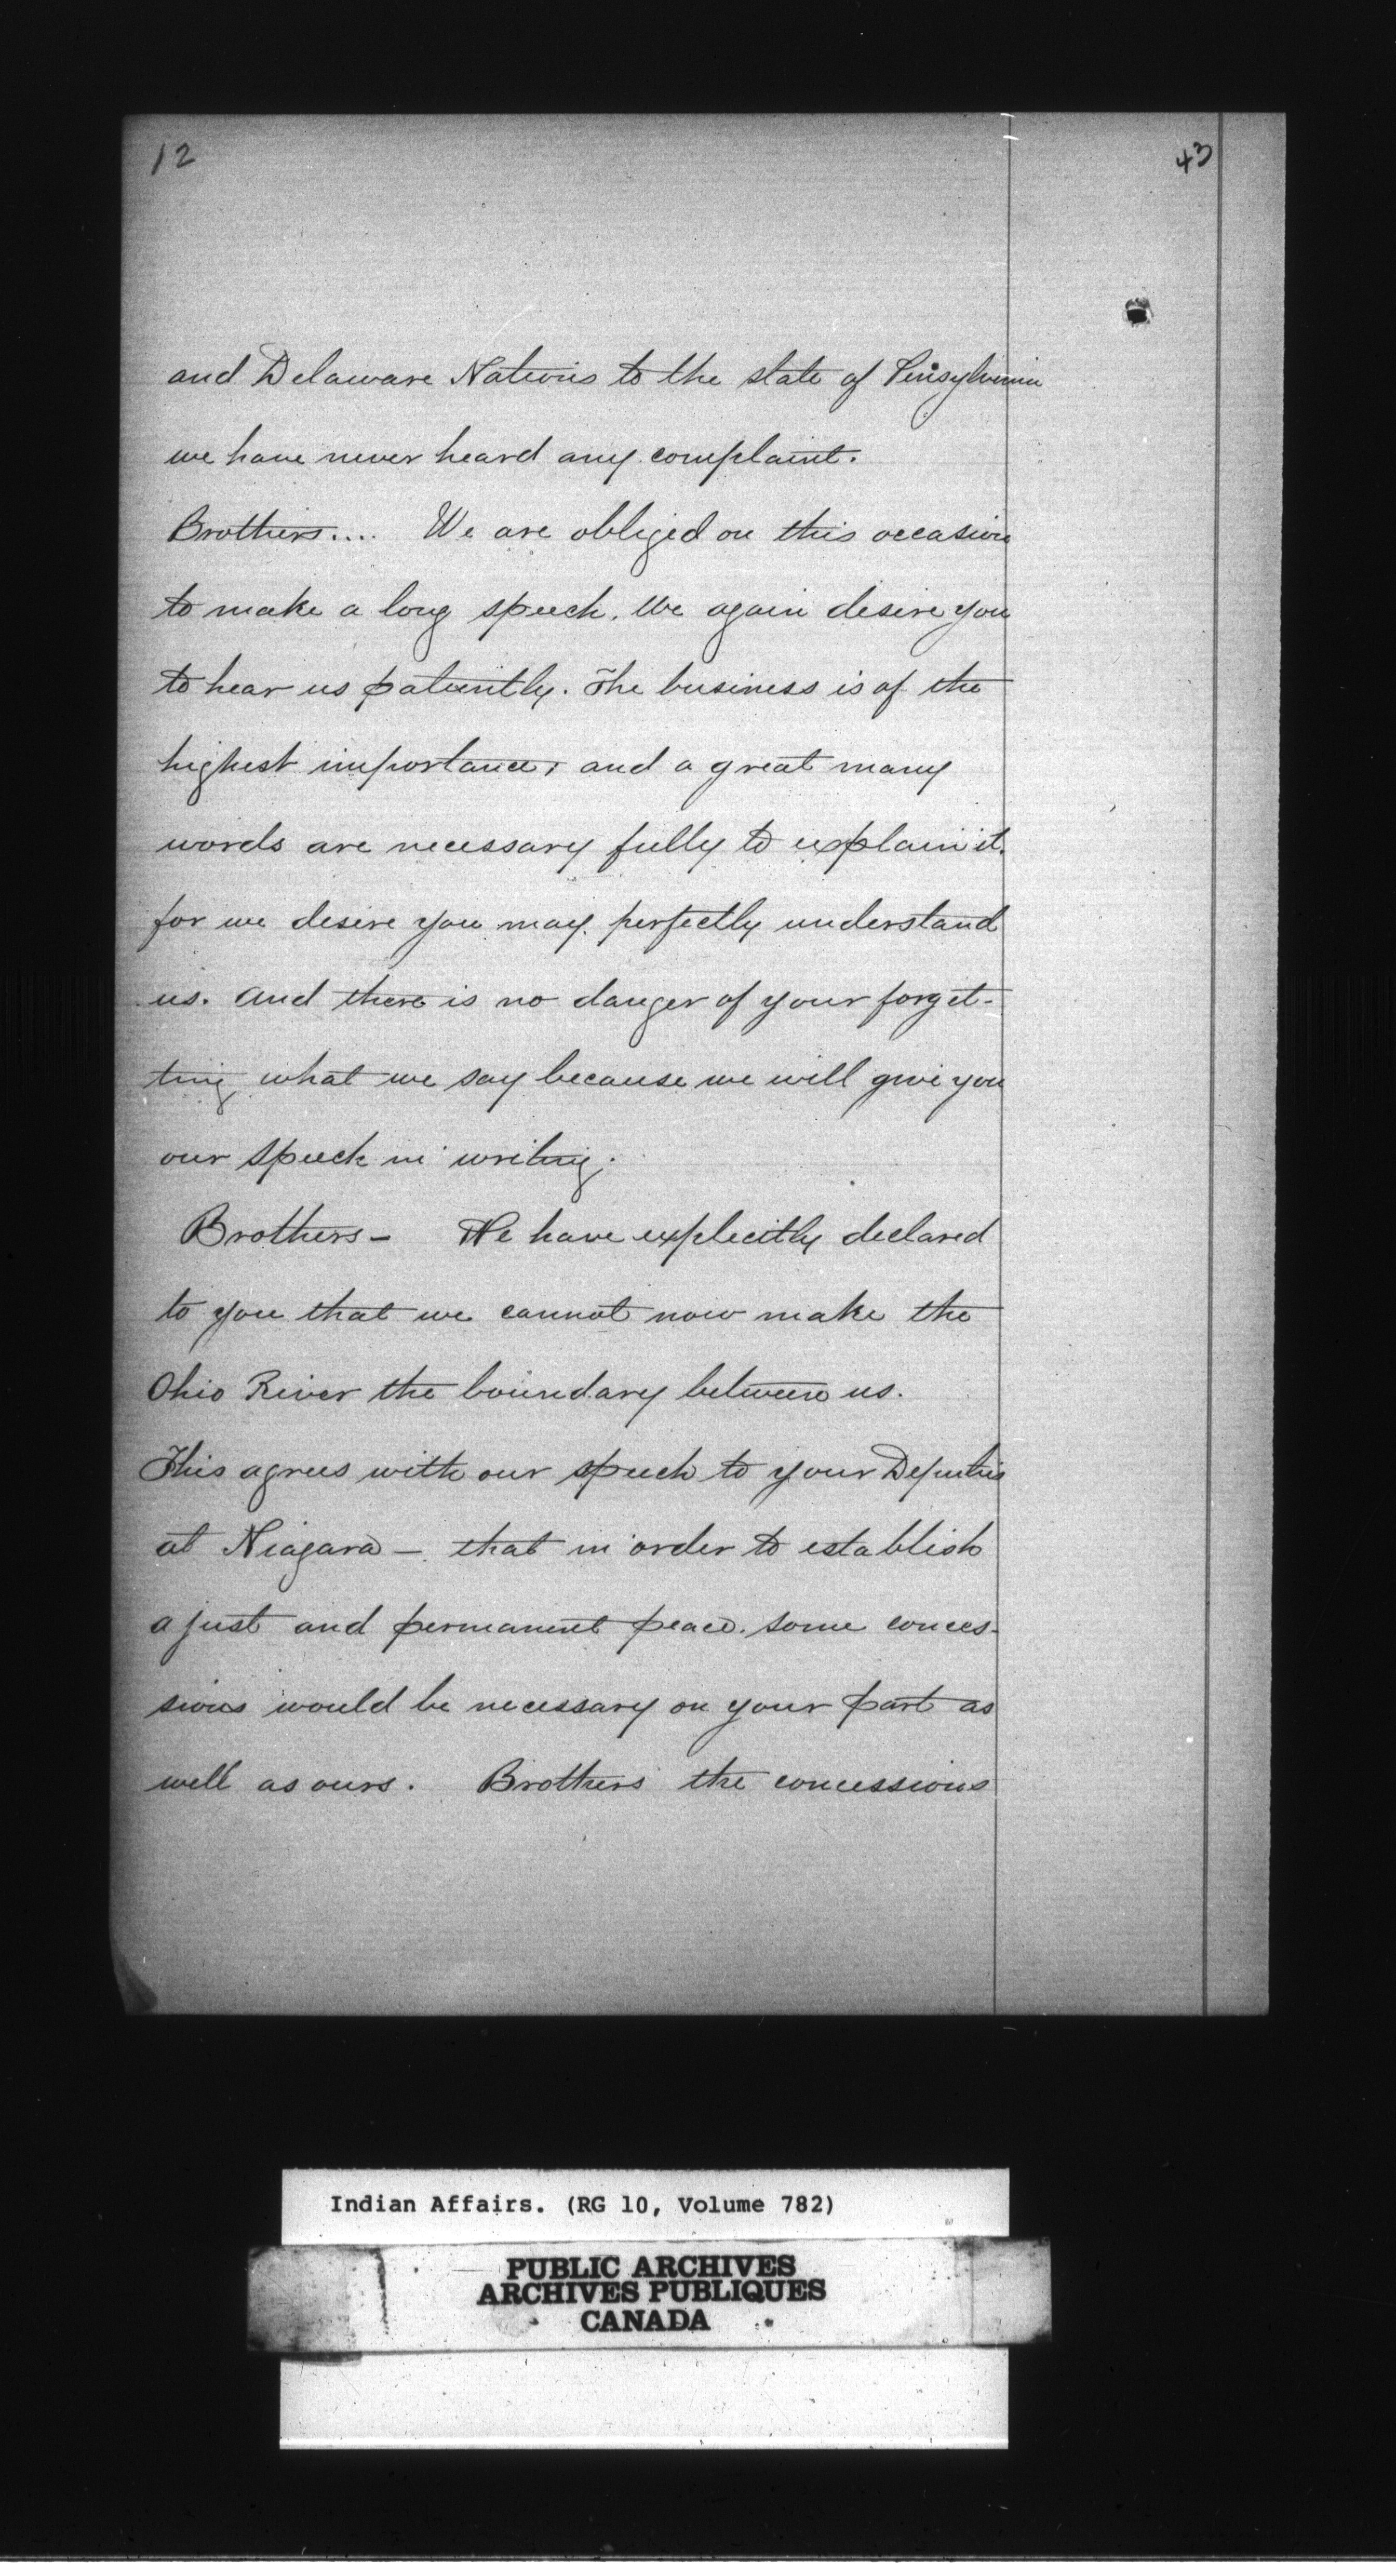 12
43
and Delaware Nations to the state of Pensylvania
we have never heard any complaint.
Brothers.... We are obliged on this occasion
to make a long speech. We again desire you
to hear us patiently. The business is of the
highest importance, and a great many
words are necessary fully to explain it.
for we desire you may perfectly understand
us. And there is no danger of your forget-
ting what we say because we will give you
our speech in writing.
Brothers - We have explicitly declared
to you that we cannot now make the
Ohio River the boundary between us.
This agrees with our speech to your Deputies
at Niagara - that in order to establish
a just and permanent peace. some conces-
sions would be necessary on your part as
well as ours. Brothers the concessions
Indian Affairs. (RG 10, Volume 782)
PUBLIC ARCHIVES
ARCHIVES PUBLIQUES
CANADA